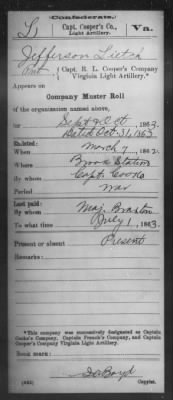 (Confederate.)
L
Capt. Cooper's Co.,
Light Artillery.
Va.
Jefferson Lietch
Pvt., Capt. R. L. Cooper's Company
Virginia Light Artillery.*
Appears on
Company Muster Roll
of the organization named above,
for Sept & Oct, 1863.
Dated Oct 31, 1863
Enlisted:
When March 7, 1862.
Where Brook Station
By whom Capt. Cooke
Period war
Last paid:
By whom Maj. Braxton
To what time July 1, 1863.
Present or absent Present
Remarks:
*This company was successively designated as Captain
Cooke's Company, Captain French's Company, and Captain
Cooper's Company Virginia Light Artillery.
Book mark:
Boyd
(642)
Copyist.